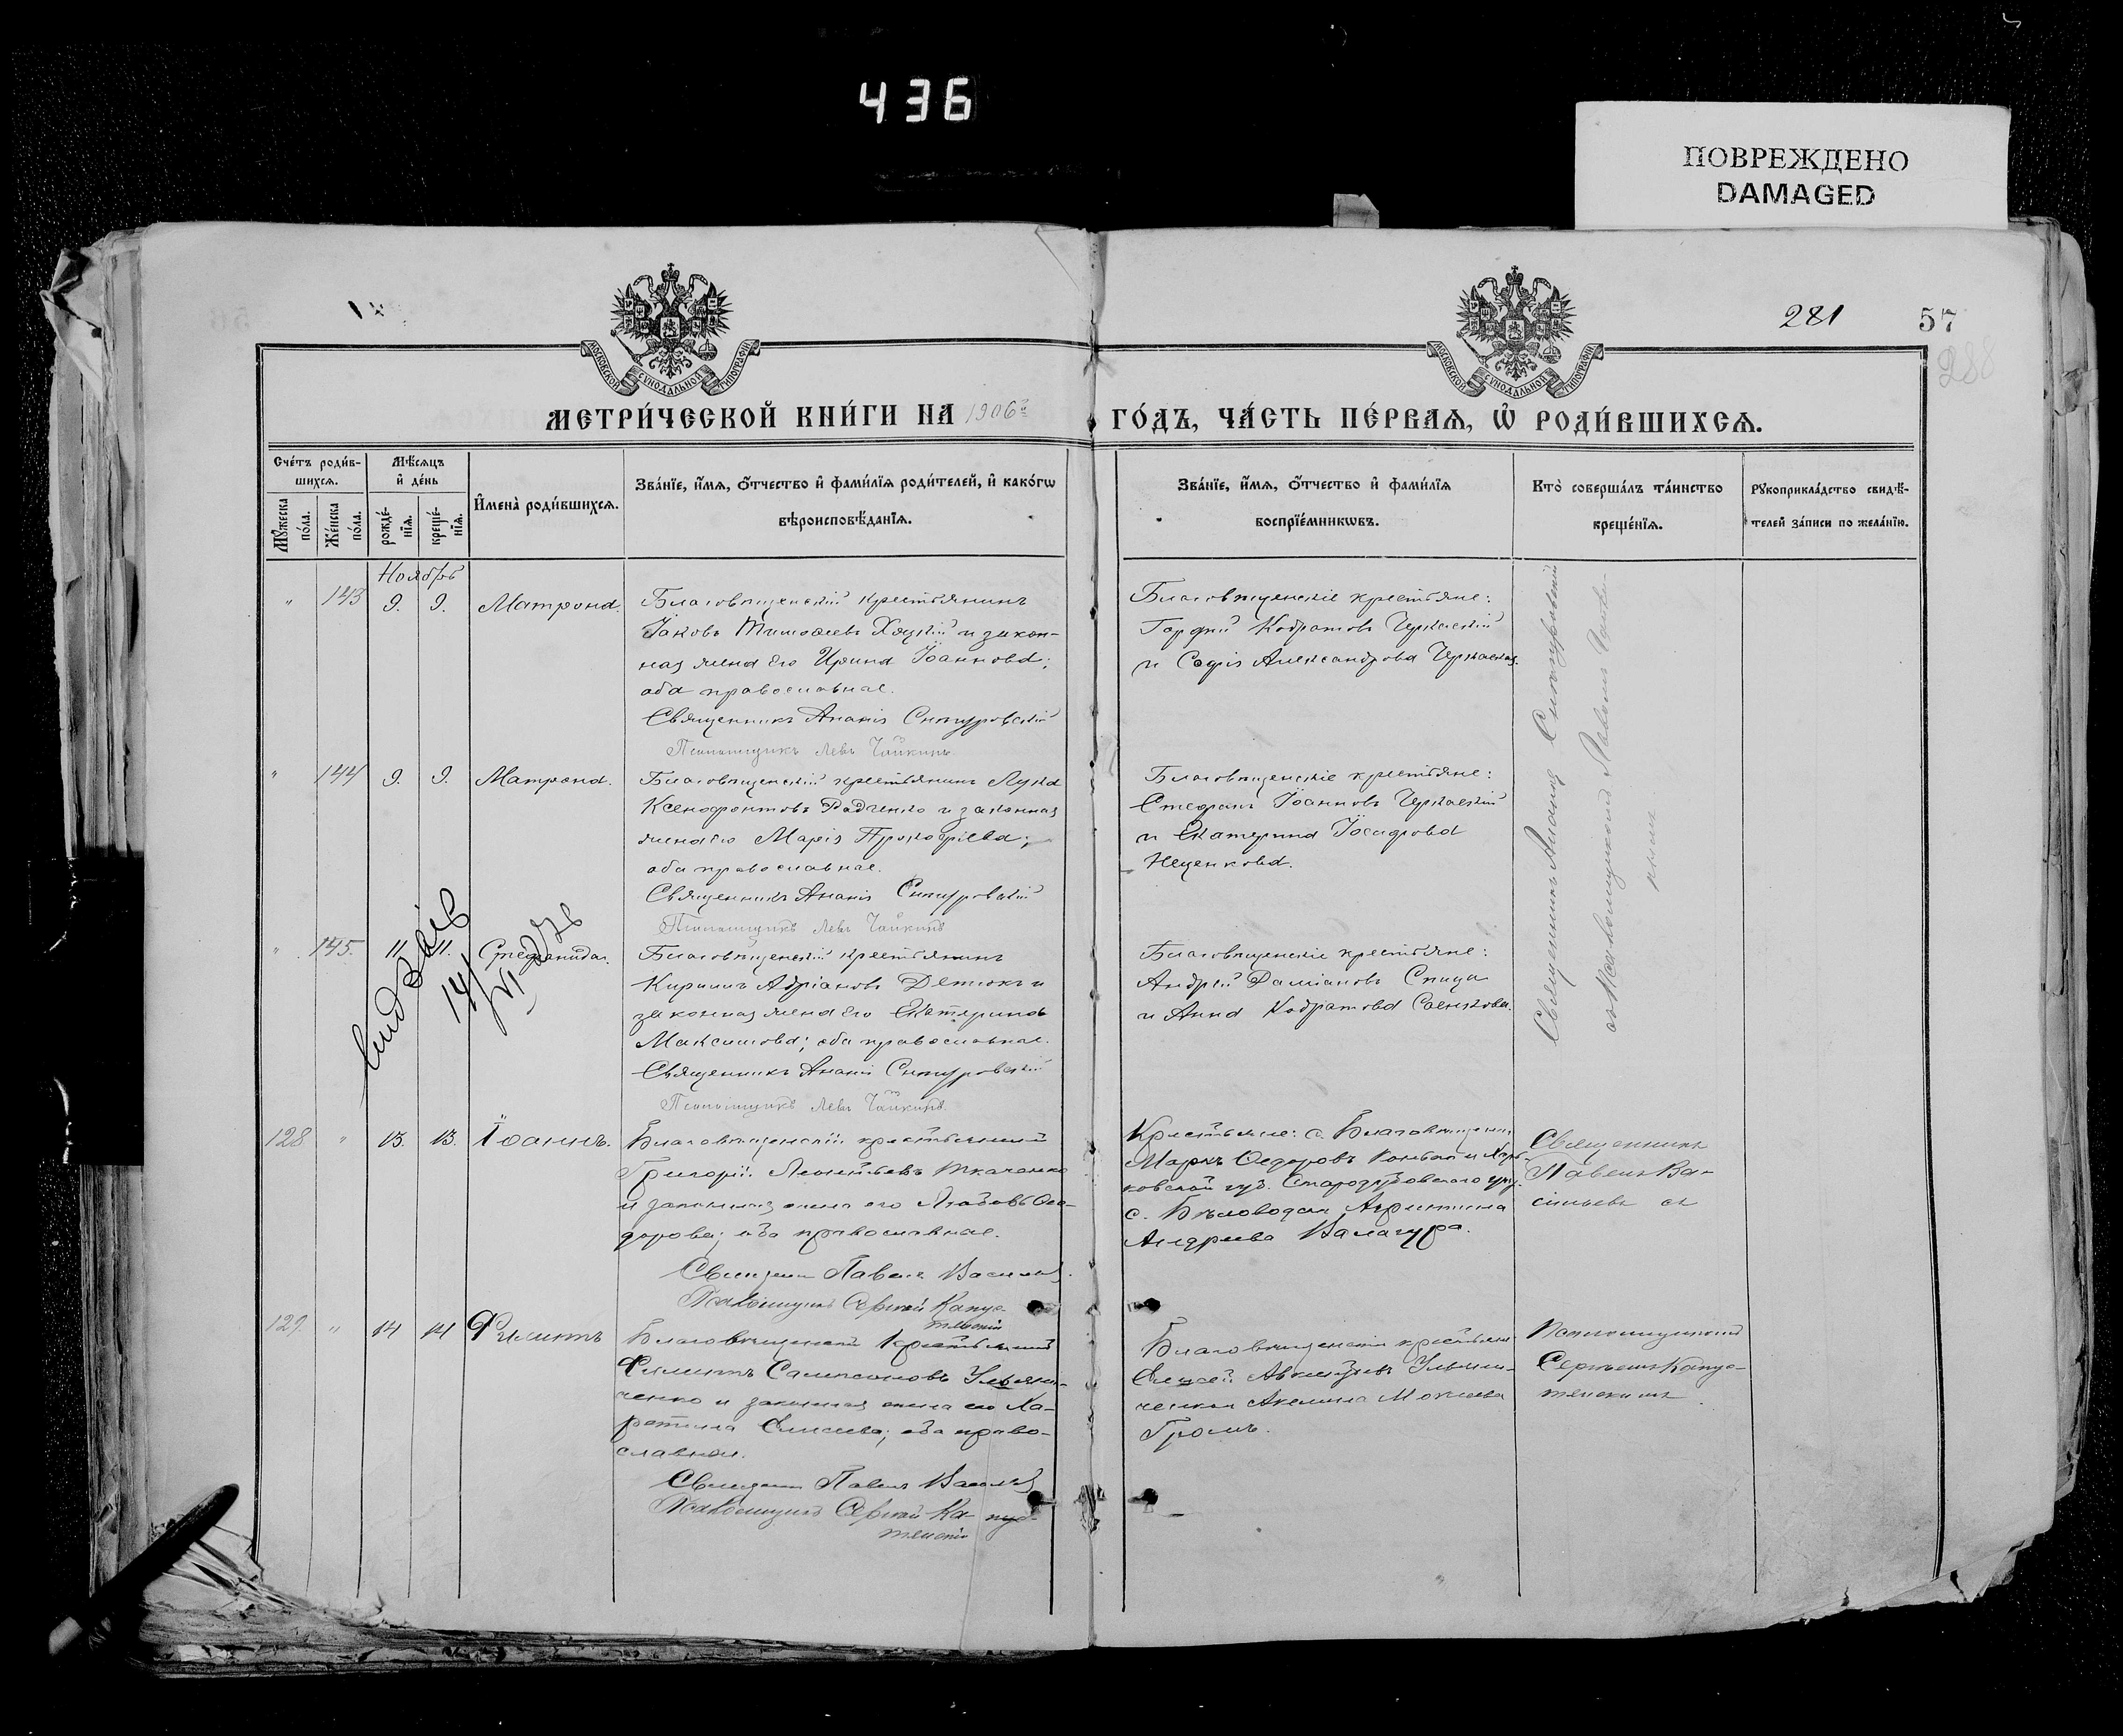 436
ПОВРЕЖДЕНО
DAMAGED
281
57
288
МОСКОВСКОЙ СѴНОДАЛЬНОЙ ТИПОГРАФІИ
МОСКОВСКОЙ СѴНОДАЛЬНОЙ ТИПОГРАФІИ
МЕТРИ́ЧЕСКОЙ КНИ́ГИ НА 1906й
ГО́ДЪ, ЧА́СТЬ ПЕ́РВАѦ, Ѡ҆ РОДИ́ВШИХСѦ.
Сче́тъ роди́в-
шихсѧ.
Мꙋ́жеска по́ла.
Же́нска по́ла.
Мѣ́сѧцъ
и҆ де́нь
рожде́-нїѧ.
креще́-нїѧ.
И҆мена̀ роди́вшихсѧ.
Зва́нїе, и҆́мѧ, ѻ҆́тчество и҆ фами́лїѧ роди́телей, и҆ како́гѡ
вѣроисповѣ́данїѧ.
Зва́нїе, и҆́мѧ, ѻ҆́тчество и҆ фами́лїѧ
воспрїе́мникѡвъ.
Кто̀ соверша́лъ та́инство
креще́нїѧ.
Рꙋкоприкла́дство свидѣ́-
телей за́писи по жела́нїю.
Ноябрь
" 143 9. 9. Матрона.
Благовѣщенскій крестьянинъ
Іаковъ Тимоѳеевъ и закон-
ная жена его Ирина Іоаннова;
оба православные.
Священникъ Ананія Ситуровскій
Псаломщикъ Левъ Чайкинъ
Благовѣщенскіе крестьяне:
Гордій Кодратовъ Черкаскій
и Софія Александрова Черкаская.
" 144 9. 9. Матрона.
Благовѣщенскій крестьянинъ Лука
Ксенофонтовъ Радченко и законная
жена его Марія Прокофіева;
оба православные.
Священникъ Ананія Ситуровскій
Псаломщикъ Левъ Чайкинъ
Благовѣщенскіе крестьяне:
Стефанъ Іоанновъ Черкаскій
и Екатерина Іосифова
Нещенкова.
" 145. 11 11. Стефанида.
Благовѣщенскій крестьянинъ
Кириллъ Адріановъ Детюкъ и
законная жена его Екатерина
Максимова; оба православные.
Священникъ Ананія Ситуровскій
Псаломщикъ Левъ Чайкинъ
Благовѣщенскіе крестьяне:
Андрей Даміановъ Спица
и Анна Кодратова Саенкова.
Священникъ Ананія Ситуровскій
съ псаломщикомъ
128 " 13. 13. Іоаннъ.
Благовѣщенскій крестьянинъ
Григорій Леонтьевъ Ткаченко
и законная жена его Любовь Ѳео-
дорова; оба православные.
Священникъ Павелъ Васильевъ
Псаломщикъ Сергѣй Капус-
тянскій
Крестьяне: с. Благовѣщенки
Маркъ Ѳедоровъ и Харь-
ковской губ. Старобѣльскаго уѣз.
с. Бѣловодска
Андреева Балагура.
Священникъ
Павелъ Ва-
сильевъ съ
129. " 14 14 Филиппъ
Благовѣщенскій крестьянинъ
Филиппъ Сампсоновъ Ульяни-
ченко и законная жена его Ха-
ритина Елисеева; оба право-
славные.
Священникъ Павелъ Васильевъ
Псаломщикъ Сергѣй Капус-
тянскій
Благовѣщенскіе крестьяне
Ульяни-
ченко и Акилина Мокиева
Громъ.
Псаломщикомъ
Сергѣемъ Капус-
тянскимъ.